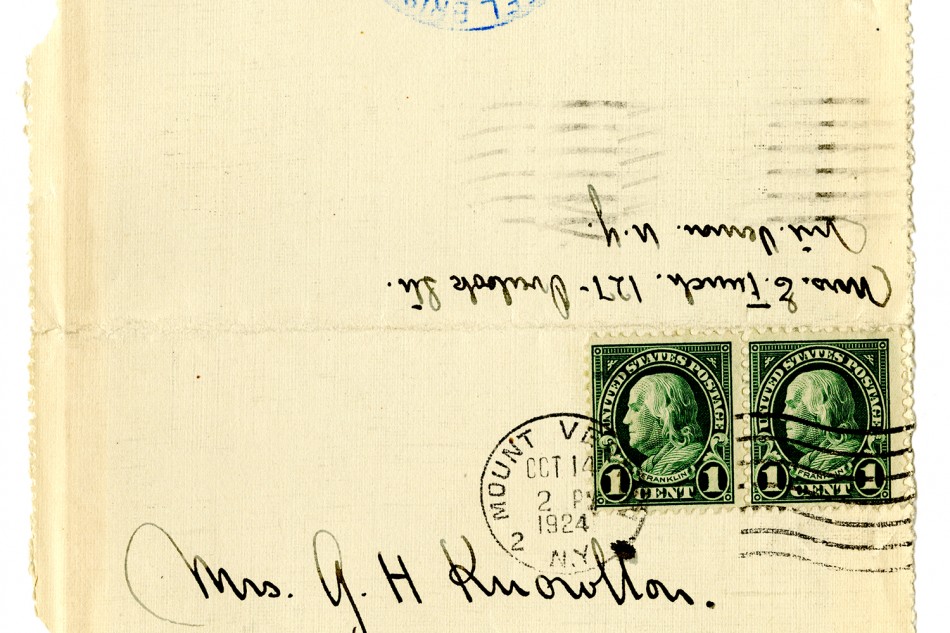 Mrs. E. Funch. 127- Overlook St.
Mt. Vernon. N.Y.
UNITED STATES POSTAGE
FRANKLIN
1 CENT 1
UNITED STATES POSTAGE
FRANKLIN
1 CENT 1
MOUNT VE
OCT 14
2 P
1924
2 N.Y.
Mrs. G. H Knowlton.